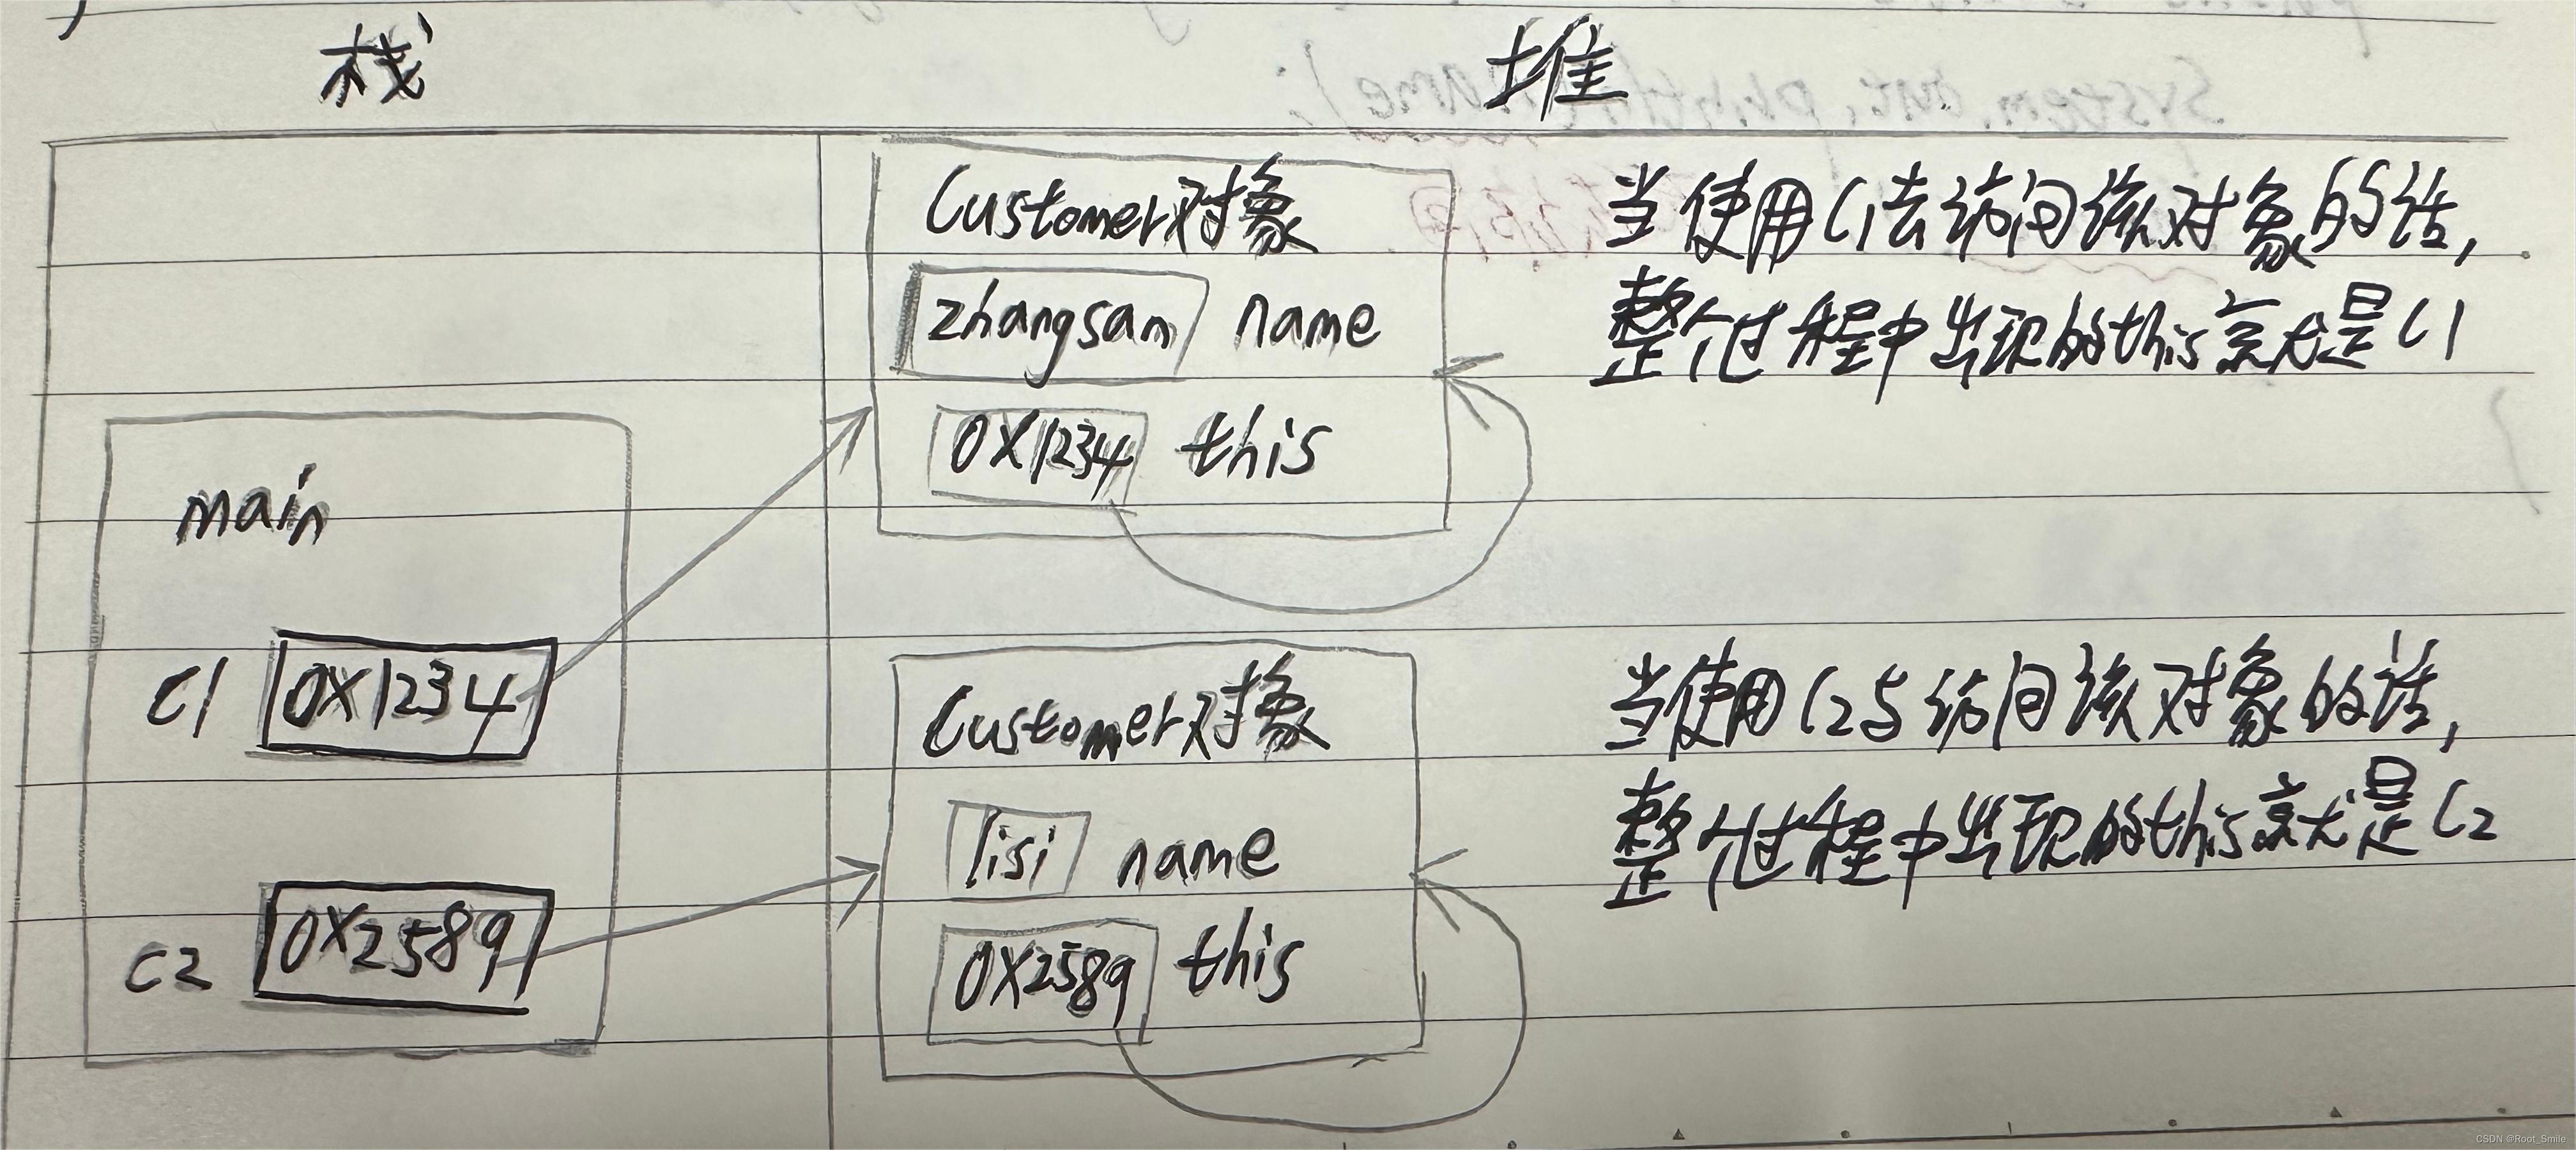 栈
堆
Customer对象
zhangsan name
0X1234 this
当使用C1去访问该对象的话,
整个过程中出现的this就是C1
main
C1 0X1234
C2 0X2589
Customer对象
lisi name
0X2589 this
当使用C2去访问该对象的话,
整个过程中出现的this就是C2
System.out.println(name);
CSDN @Root_Smile